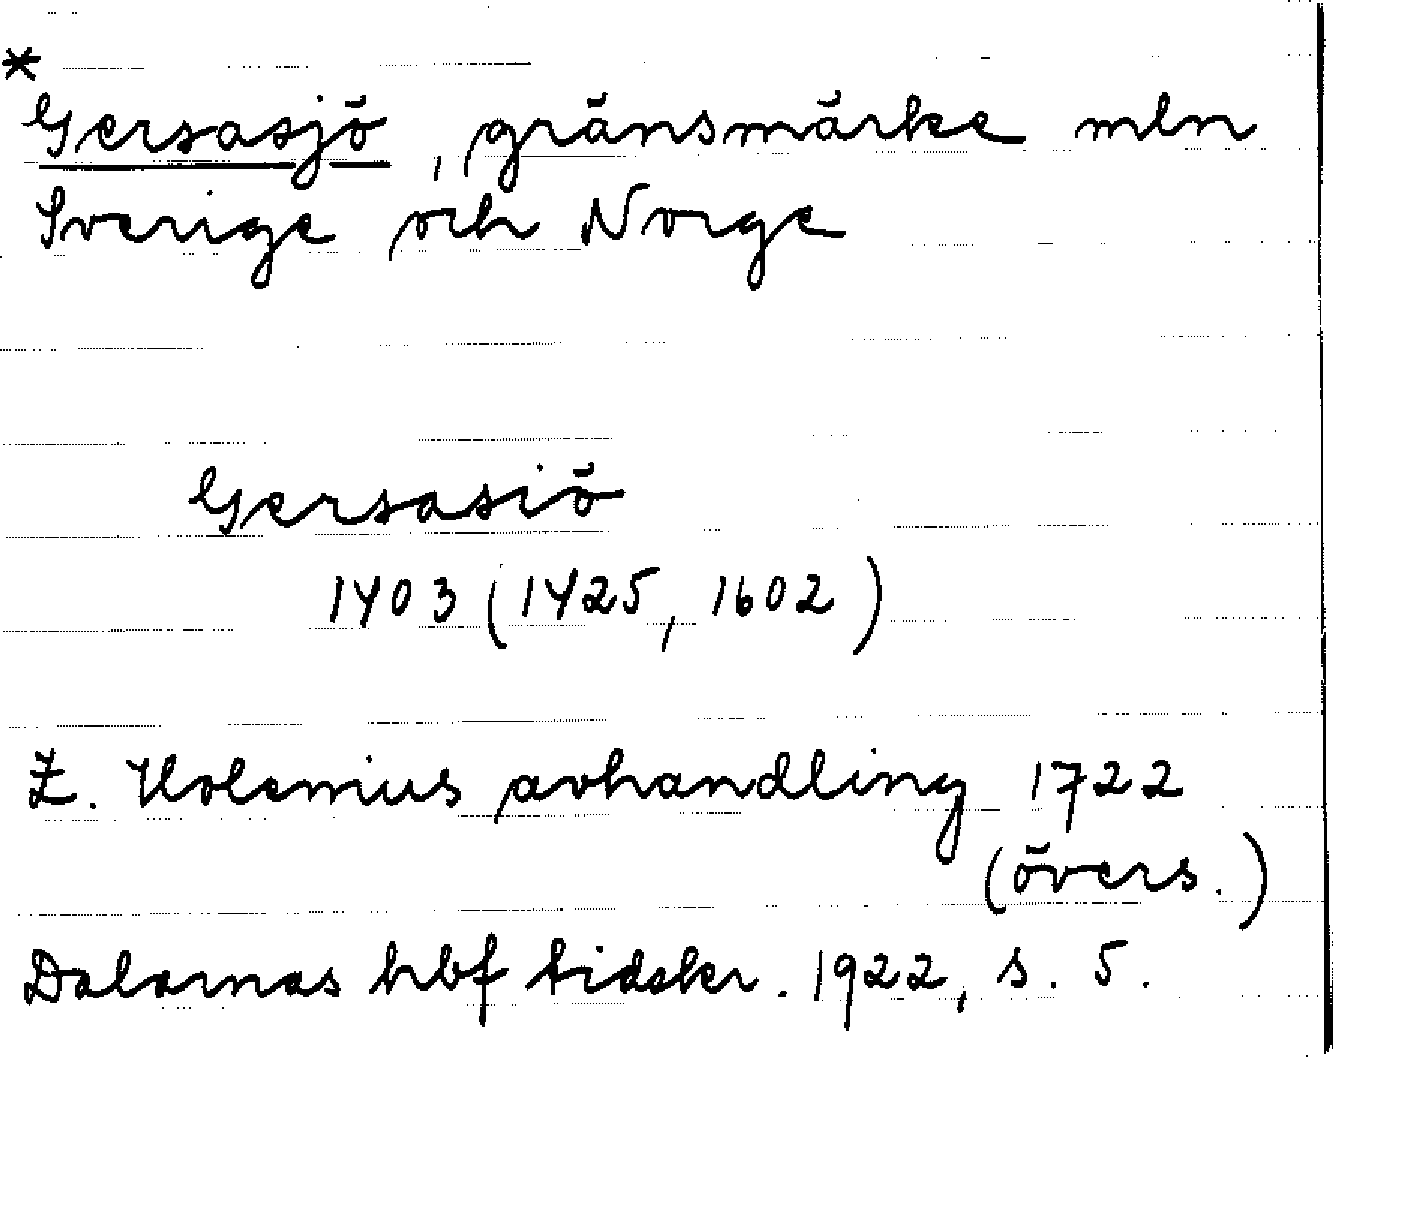 *
Gersasjö, gränsmärke mln
Sverige och Norge
Gersasiö
1403 (1425, 1602)
Z. Holenius avhandling 1722
(övers.)
Dalarnas hbf tidskr. 1922, s. 5.